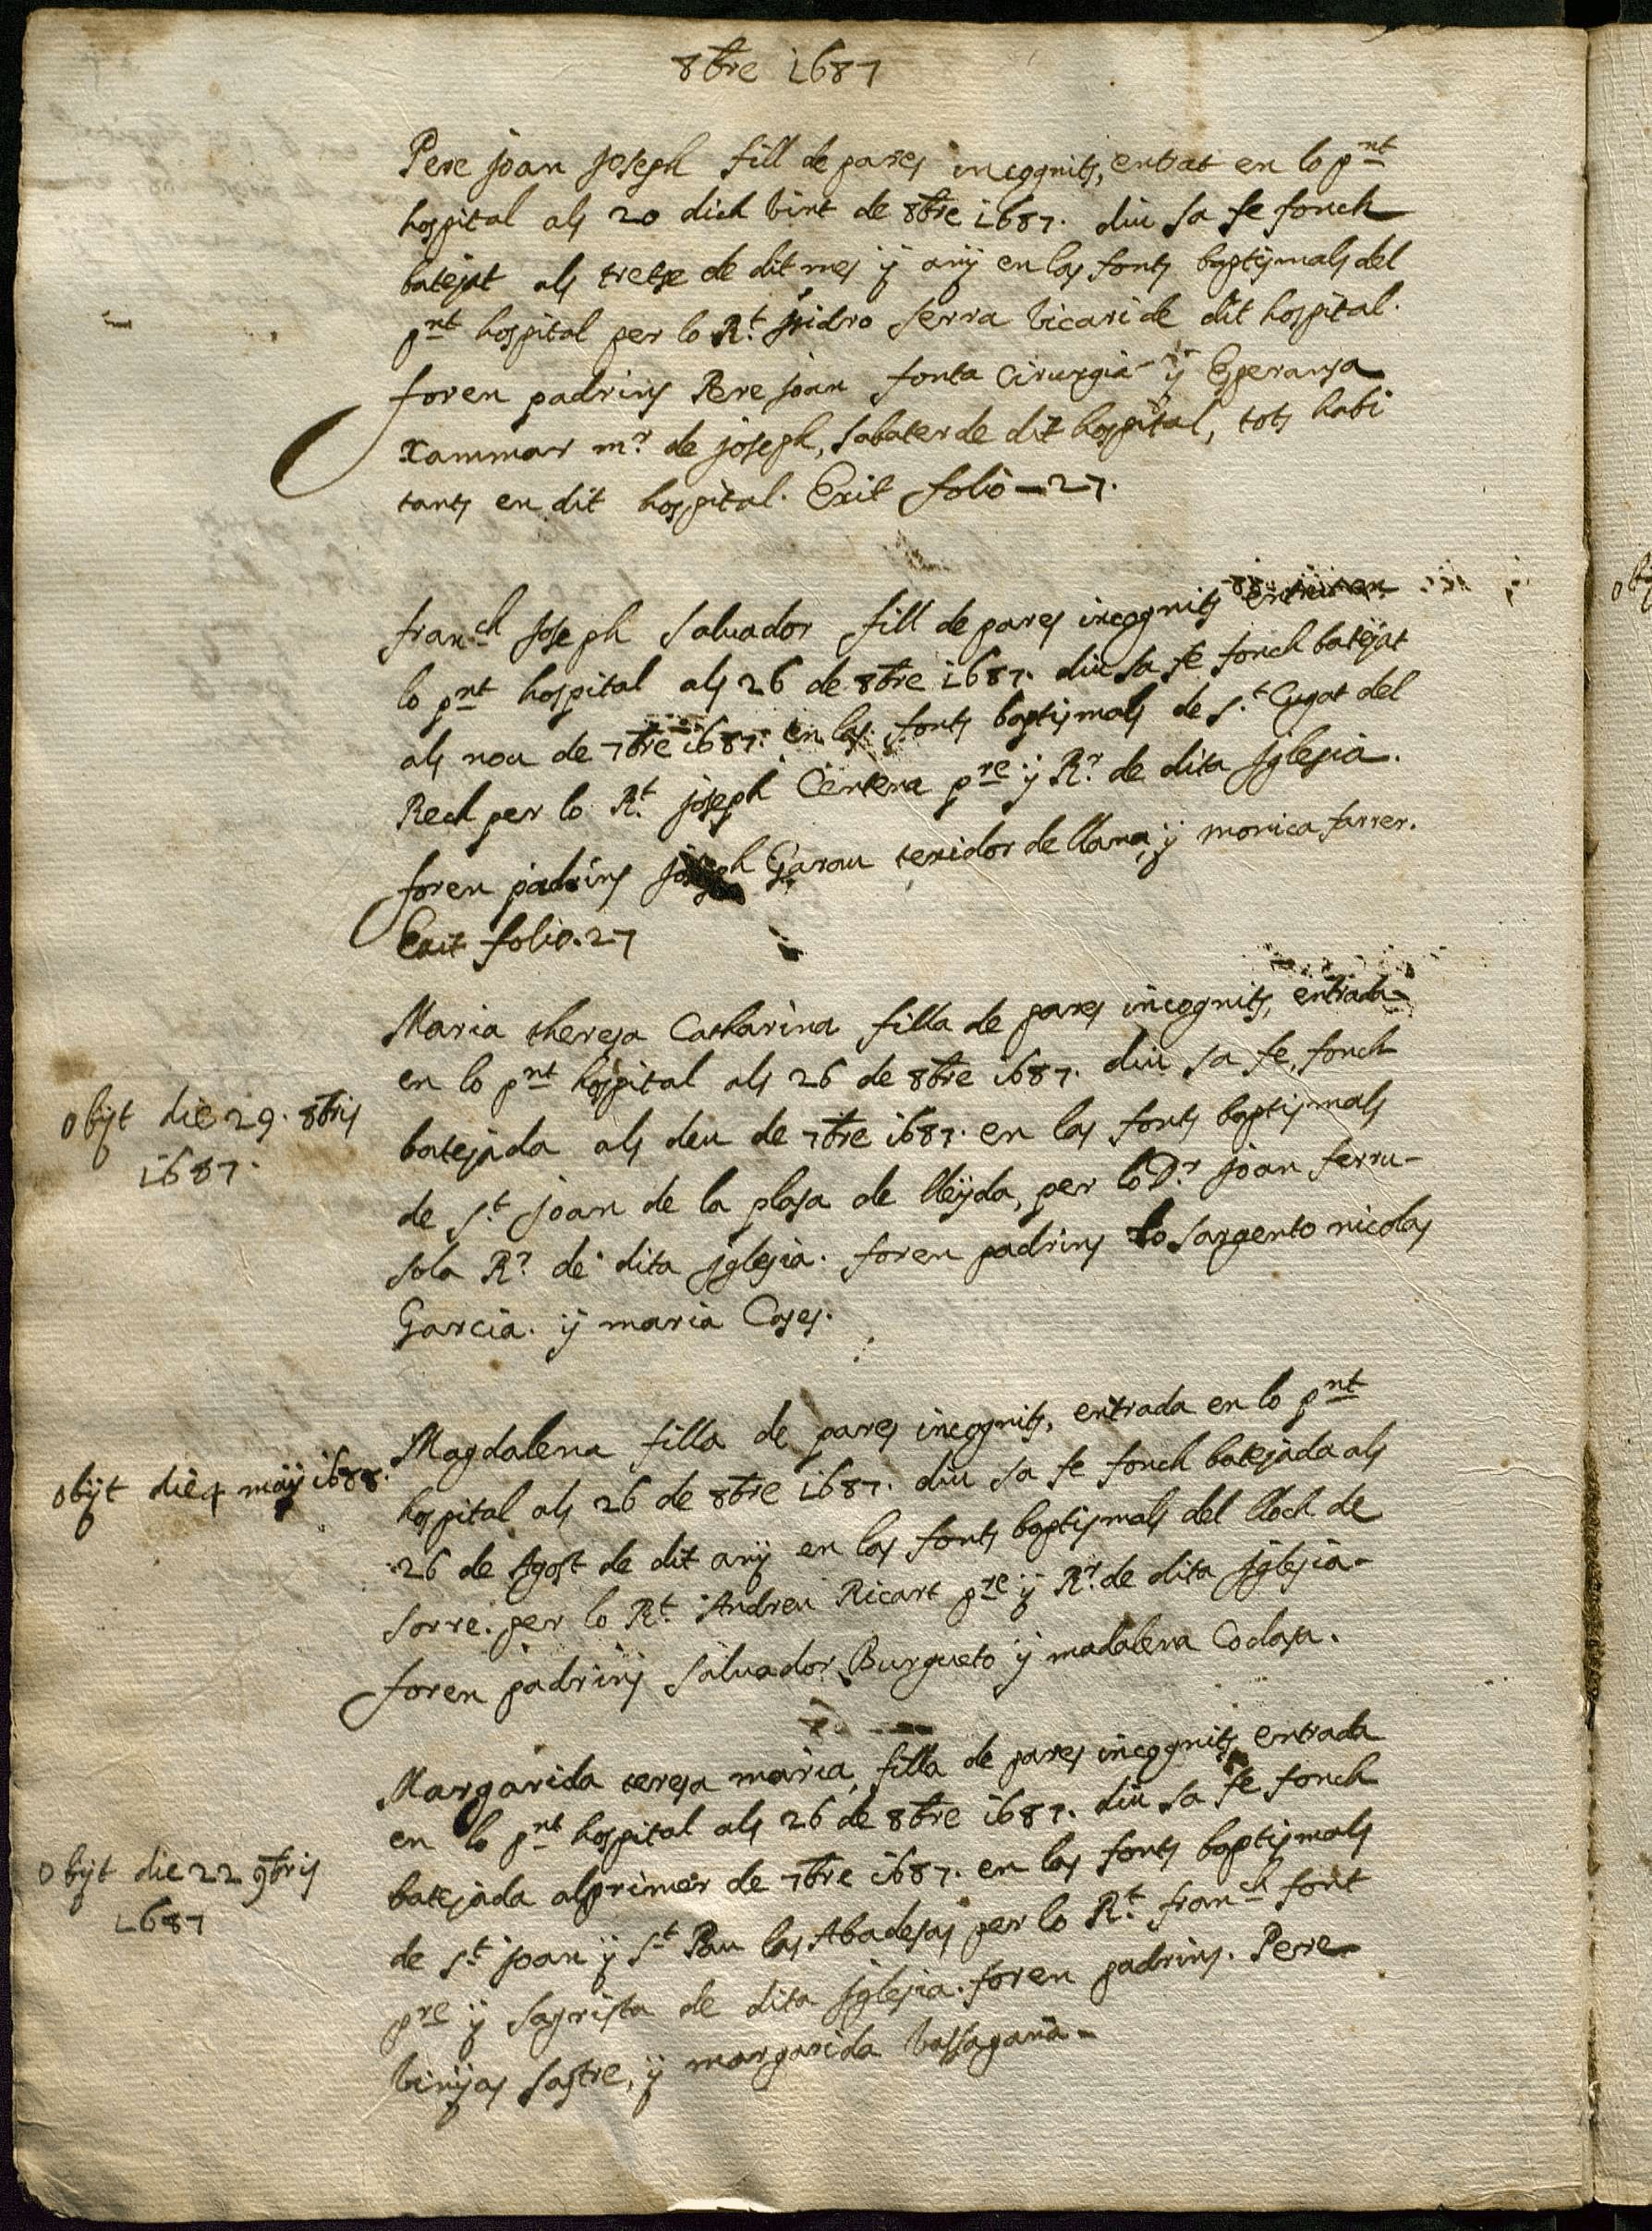 8bre 1687
Pere joan joseph fill de pares incognits, entrat en lo pnt
hospital als 20 dich vint de 8bre 1687. diu sa fe fonch
batejat als tretse de dit mes ÿ anÿ en las fonts baptismals del
pnt hospital per lo Rt. jsidro serra vicari de dit hospital.
foren padrins Pere joan fonta Cirurgià ÿ Esperansa
xammar mr. de joseph, sabater de dit hospital, tots habi
tants en dit hospital. Exit folio - 27.
franch joseph salvador fill de pares incognits
lo pnt hospital als 26 de 8bre 1687. diu sa fe fonch batejat
als nou de 7bre 1687. en las fonts baptismals de st. Cugat del
Rech per lo Rt. joseph Centena pre ÿ Rr. de dita jglesia.
foren padrins joseph Garau texidor de llana, ÿ monica farrer.
Exit folio. 27
Maria theresa Catharina filla de pares incognits, entrada
en lo pnt hospital als 26 de 8bre 1687. diu sa fe, fonch
Obÿt die 29. 8bris
1687.
batejada als deu de 7bre 1687. en las fonts baptismals
de st. joan de la plasa de lleÿda, per lo Dr. joan ferru-
sola Rr. de dita jglesia. foren padrins lo sargento nicolas
Garcia. ÿ maria Coses.
Magdalena filla de pares incognits, entrada en lo pnt
Obÿt die 4 maÿ 1688.
hospital als 26 de 8bre 1687. diu sa fe fonch batejada als
26 de Agost de dit anÿ en las fonts baptismals del lloch de
sorre. per lo Rt. Andreu Ricart pre ÿ Rr. de dita jglesia-
foren padrins salvador Burgueto ÿ madalena Codasa.
Margarida teresa maria, filla de pares incognits entrada
en lo pnt hospital als 26 de 8bre 1687. diu sa fe fonch
Obÿt die 22 9bris
1687
batejada al primer de 7bre 1687. en las fonts baptismals
de st. joan ÿ st. Pau las Abadesas per lo Rt. franch font
pre ÿ sagrista de dita jglesia. foren padrins. Pere
vinÿas sastre, ÿ margarida vassagana-